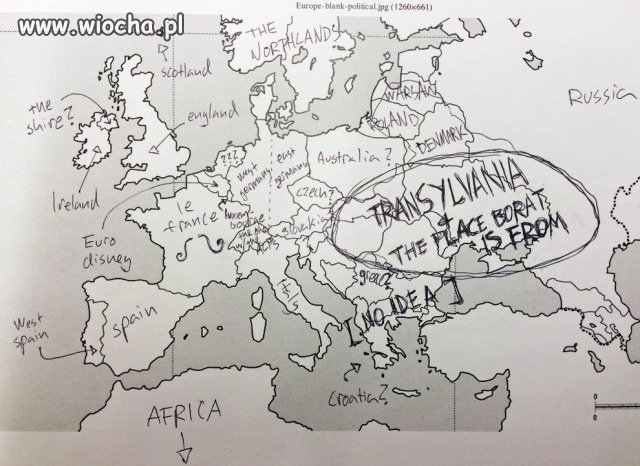 Europe-blank-political.jpg (1260×661)
www.wiocha.pl
THE
NORTHLANDS
scotland
the
shire?
england
Ireland
Russia
WARSAW
POLAND
DENMARK
???
west
germany
east
germany
Australia?
czech?
TRANSYLVANIA
&
THE PLACE BORAT
IS FROM
le
france
Euro
disney
slovakia
spain
West
spain
[NO IDEA]
croatia?
AFRICA